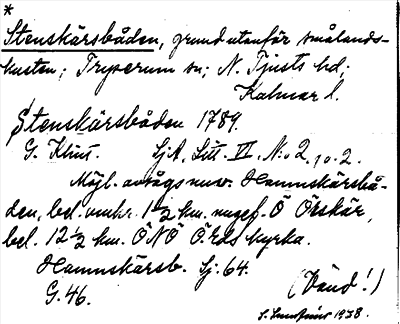 *
Stenskärsbåden, grund utanför smålands-
kusten; Tryserum sn; N. Tjusts hd;
Kalmar l.
Stenskärsbåden 1789.
G. Klint. SjA. Litt. VI. N:o 2, p. 2.
Möjl. avsågs nuv. Hamnskärsbå-
den, bel. omkr. 1½ km. ungef. Ö Örskär,
bel. 12½ km. ÖNÖ Ö. Eds kyrka.
Hamnskärsb. Sj. 64.
G. 46. (Vänd!)
1938.